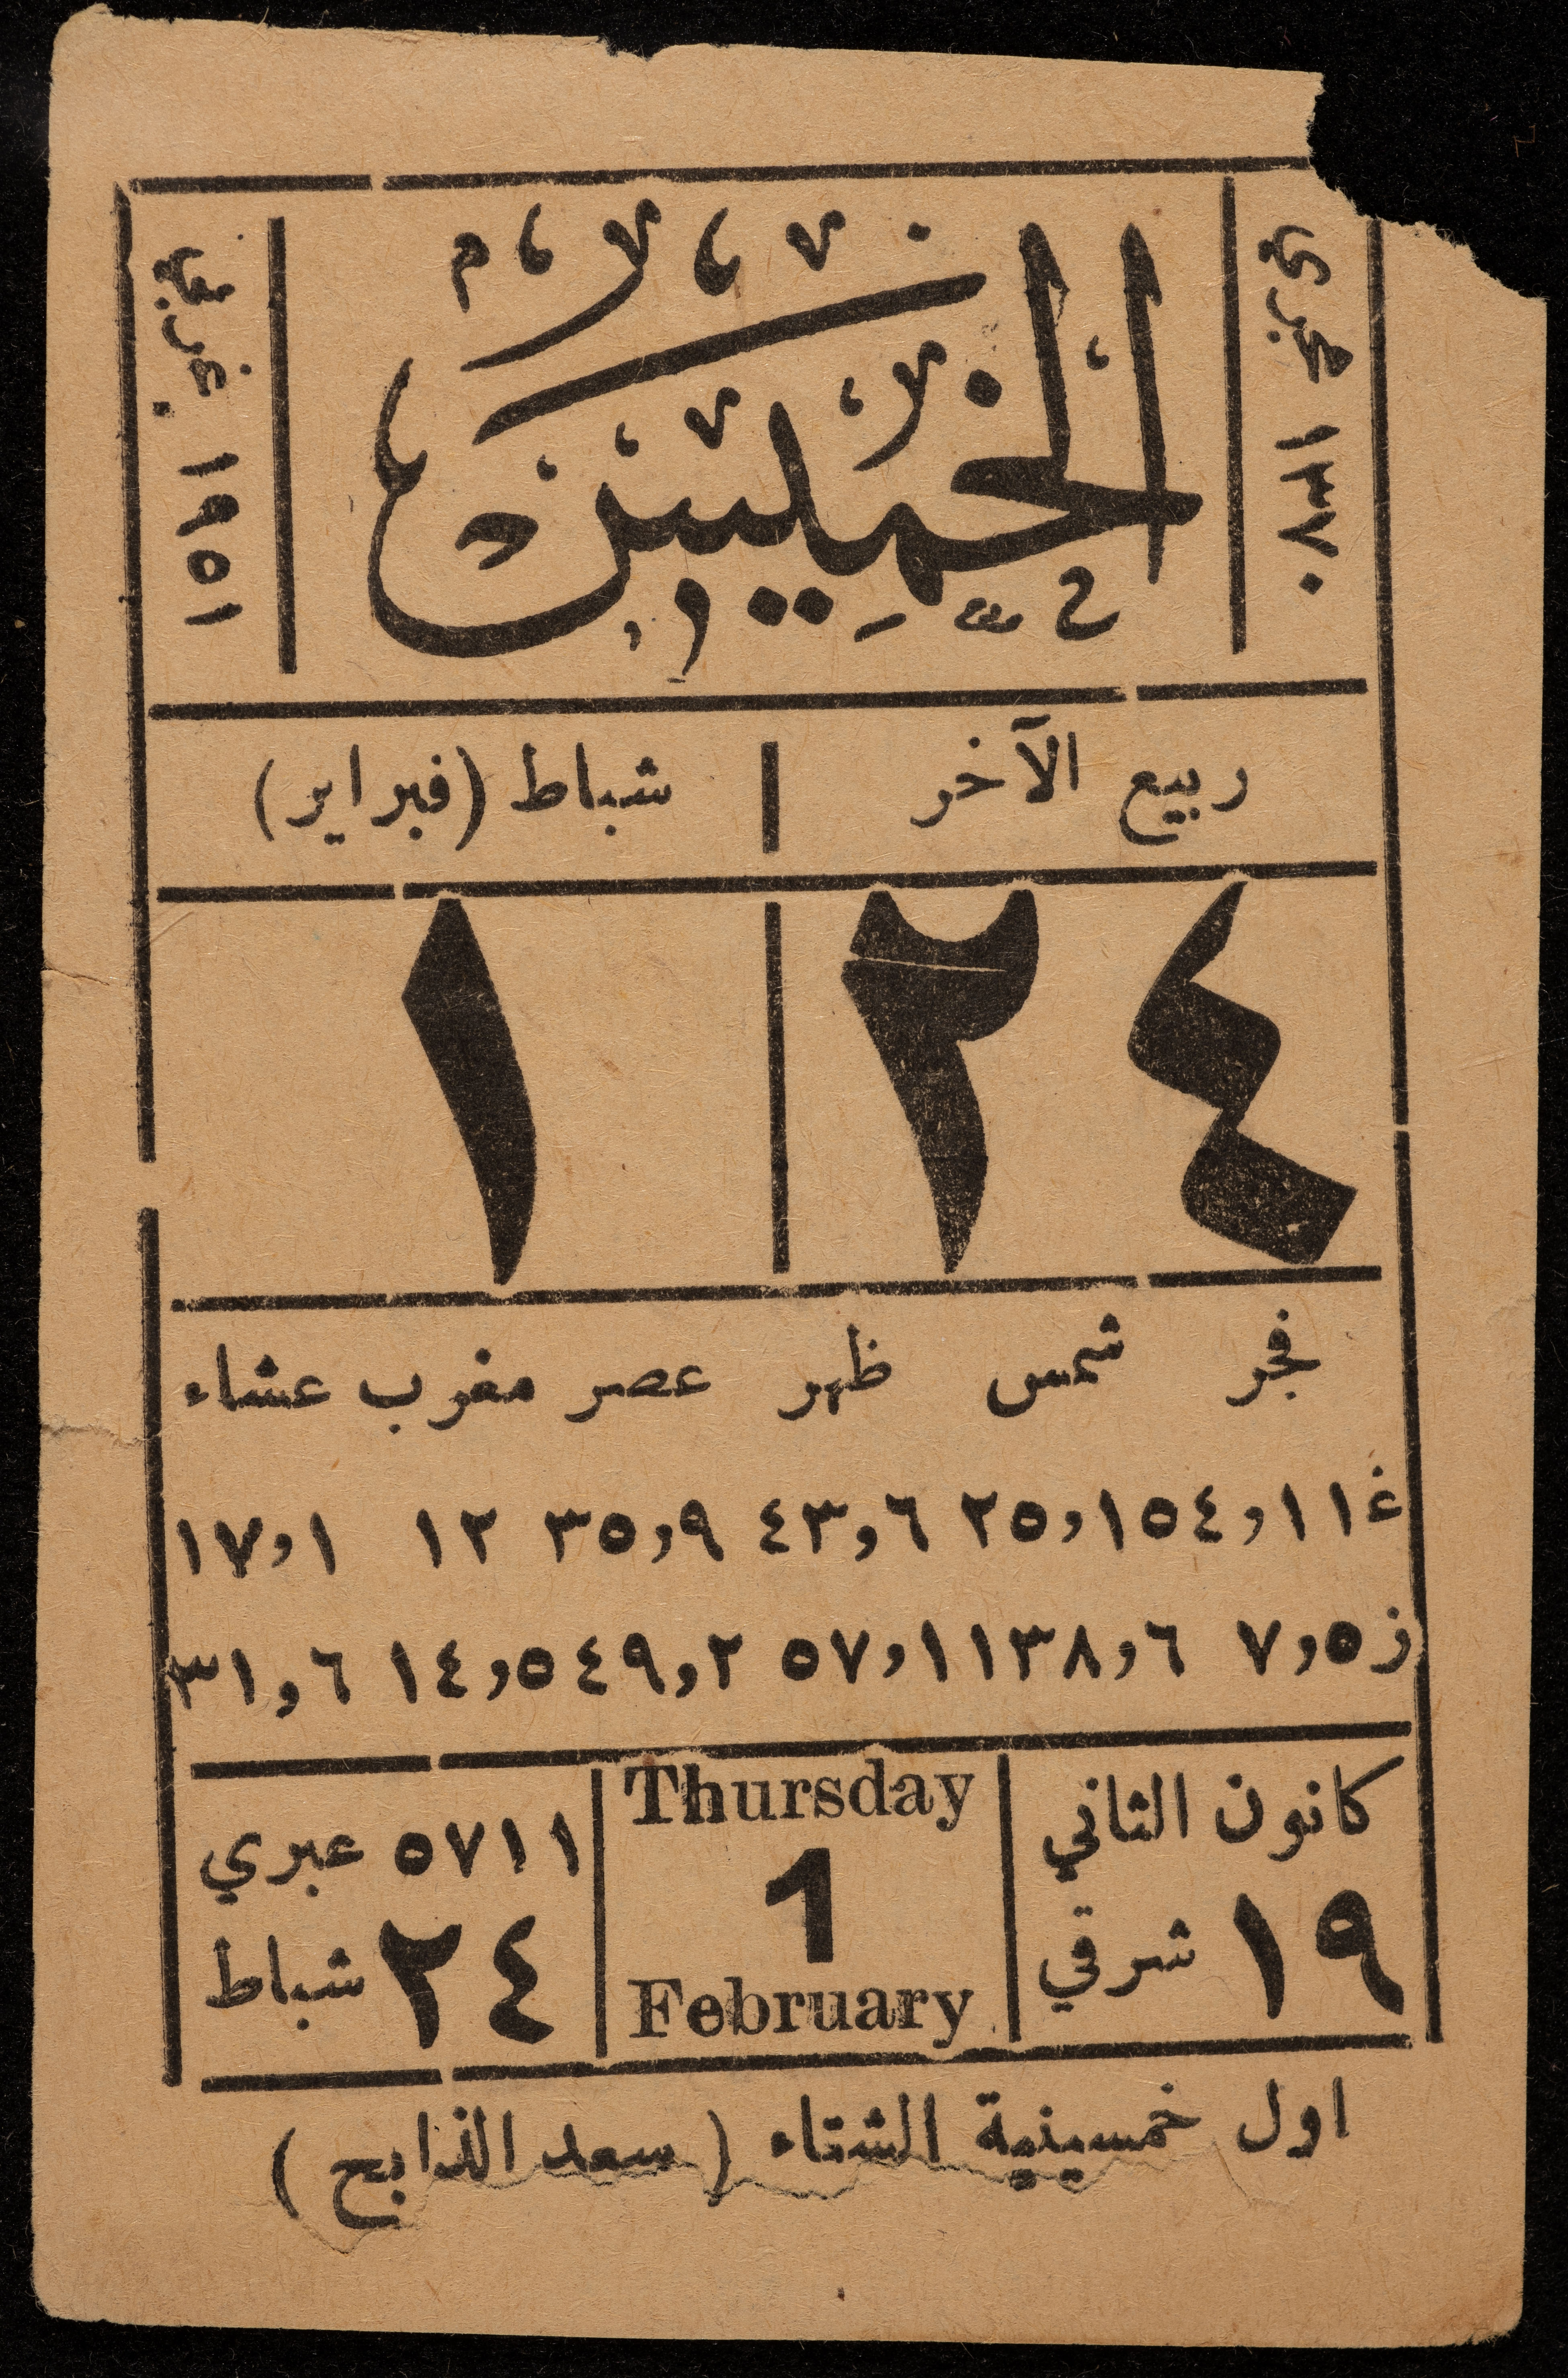 ١٣٧٠ هجري
الخميس
١٩٥١ غربي
ربيع الآخر
شباط (فبراير)
٢٤
١
فجر شمس ظهر عصر مغرب عشاء
غ ٥٤,١١ ٢٥,١ ٤٣,٦ ٣٥,٩ ١٢ ١٧,١
ز ٧,٥ ٣٨,٦ ٥٧,١١ ٤٩,٢ ١٤,٥ ٣١,٦
كانون الثاني
١٩ شرقي
Thursday
1
February
٥٧١١ عبري
٢٤ شباط
اول خمسينية الشتاء (سعد الذابح)